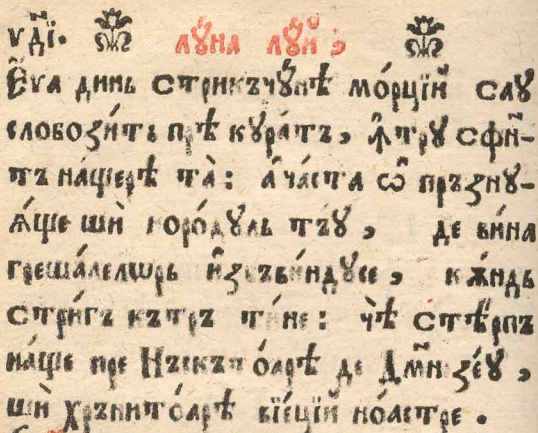 уді҃. луна луй,
Є҆ѵа динь стрикъчꙋнѣ мо́рцїй сау
слобози́ть прѣ кура́тъ, ꙟ҆тру сфи҃н-
тъ на́щерѣ та̀: а҆ча́ста ѿ пръзну-
ѧ́ще ши̑ норо́дꙋль тъ́ꙋ, де ви́на
греша́лелѡрь и҆збъви́ндусе, кѫ́ндь
стри́гъ кътръ ти́не: чѣ̀ стѣ́рпъ
на́ще пре Нъскъто́арѣ де Дм҃незе́ꙋ,
ши̑ хръните́оарѣ вїе́цїй ноа́стре.